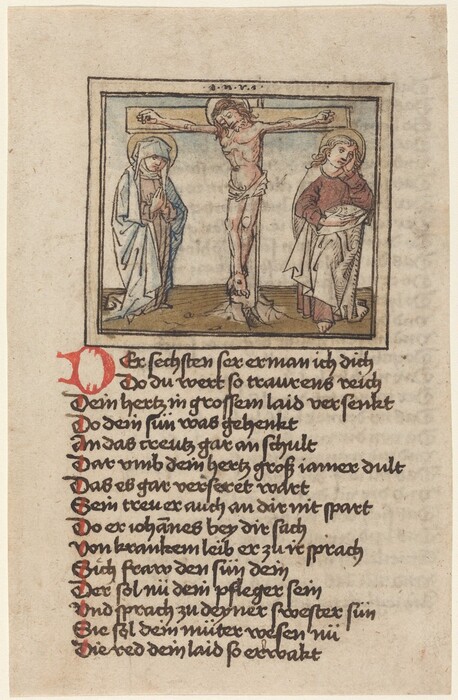 · I · N · R · I ·
Der sechsten ser erman ich dich
Do du wert so traurens reich
Dein hertz in grossem laid versenkt
Do dein sün was gehenkt
An das creutz gar an schult
Dar vmb dein hertz groß iamer dult
Das es gar verseret wart
Sein treu er auch an dir nit spart
Do er iohānes bey dir sach
Von krankem leib er zu ir sprach
Sich fraw den sün dein
Der sol nū dein pfleger sein
Vnd sprach zu deyner swester sün
Sie sol dein mūter wesen nū
Die red dein laid so erwakt